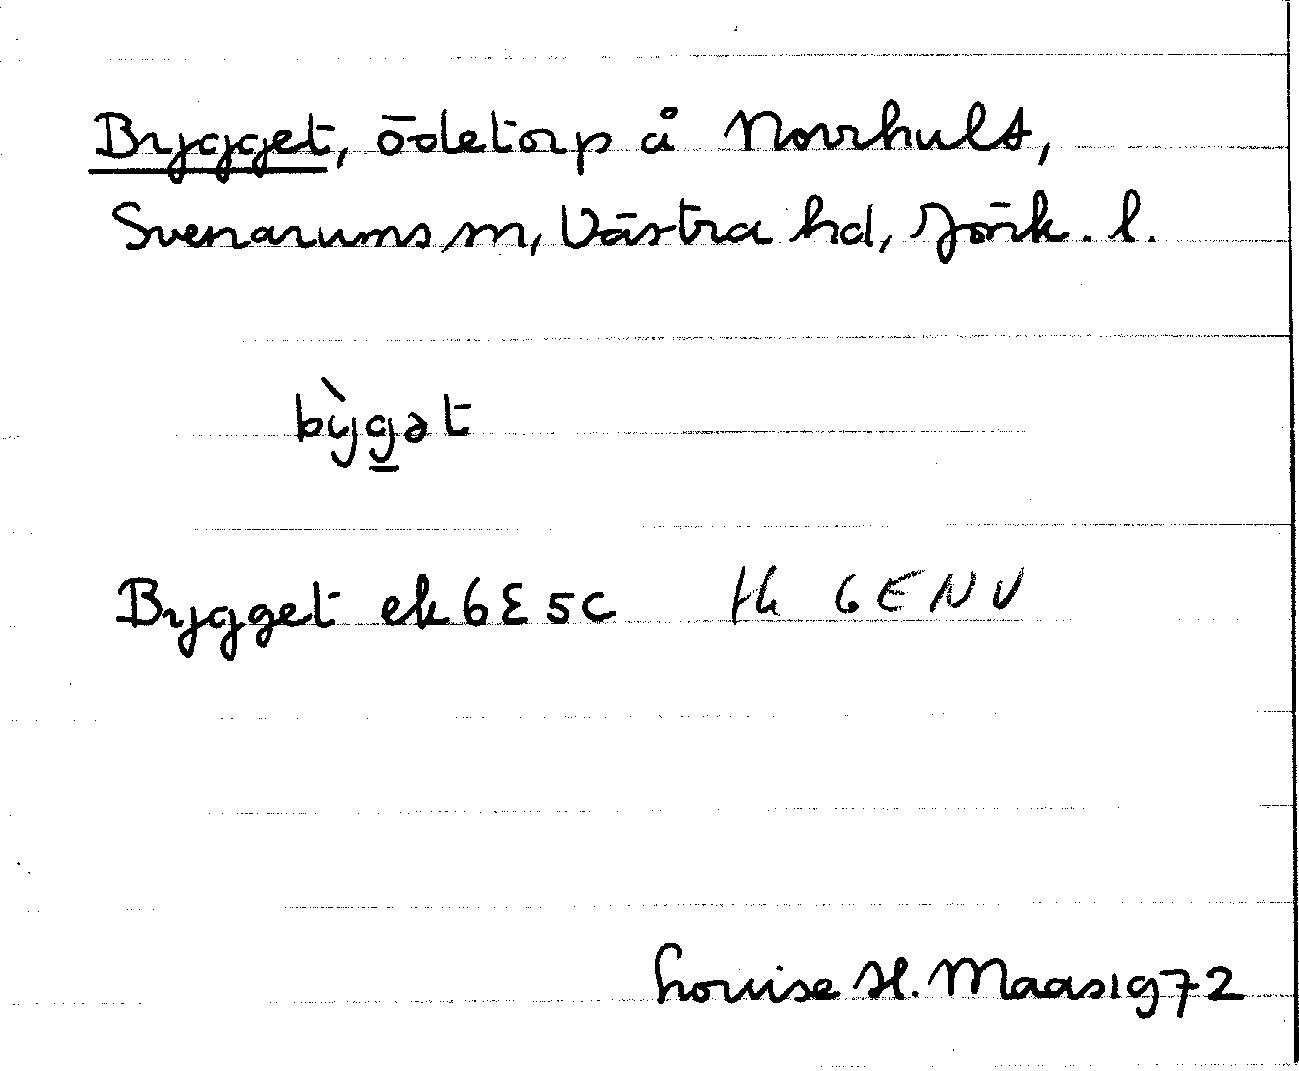 Bygget, ödetorp å Norrhult,
Svenarums sn, Västra hd, Jönk. l.
bỳg̲ət
Bygget ek 6E5c tk 6ENV
Louise H. Maas 1972